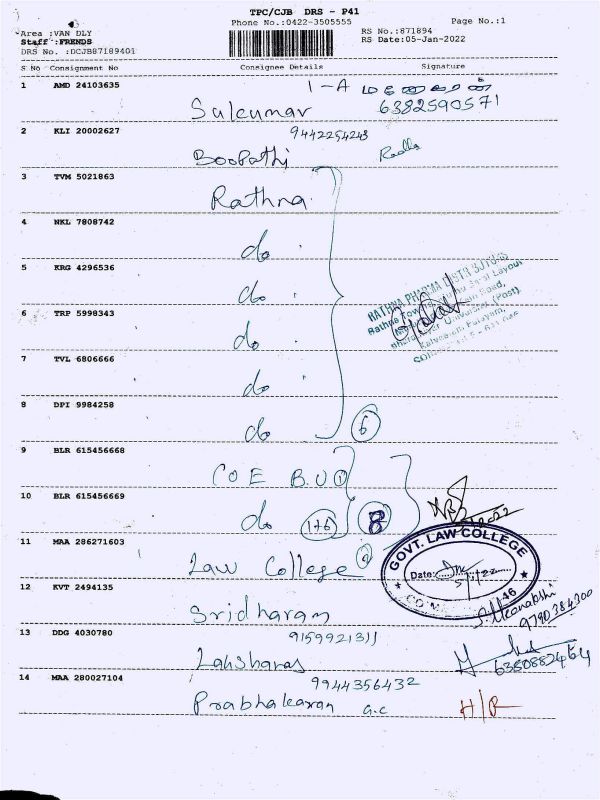 TPC/CJB DRS - P41
Phone No.:0422-3505555
Page No.:1
Area :VAN DLY
Staff :FRENDS
DRS No. :DCJB87189401
RS No.:871894
RS Date:05-Jan-2022
S No Consignment No Consignee Details Signature
1 AMD 24103635 1-A
Sukumar 6382590571
2 KLI 20002627 9442254243
Boopathi
3 TVM 5021863
Rathna
4 NKL 7808742
do
5 KRG 4296536
do
6 TRP 5998343
do
7 TVL 6806666
do
8 DPI 9984258
do 6
RATHNA PHARMA DISTRIBUTORS
9 BLR 615456668
COE B.U 1
10 BLR 615456669
do 1+6 8
11 MAA 286271603
Law College
GOVT. LAW COLLEGE
Date:
46
12 KVT 2494135
Sridharan
S. Meenakshi
9790384300
13 DDG 4030780 9159921311
Lakshanas
6380882464
14 MAA 280027104 9944356432
Prabhakaran G.C H/R